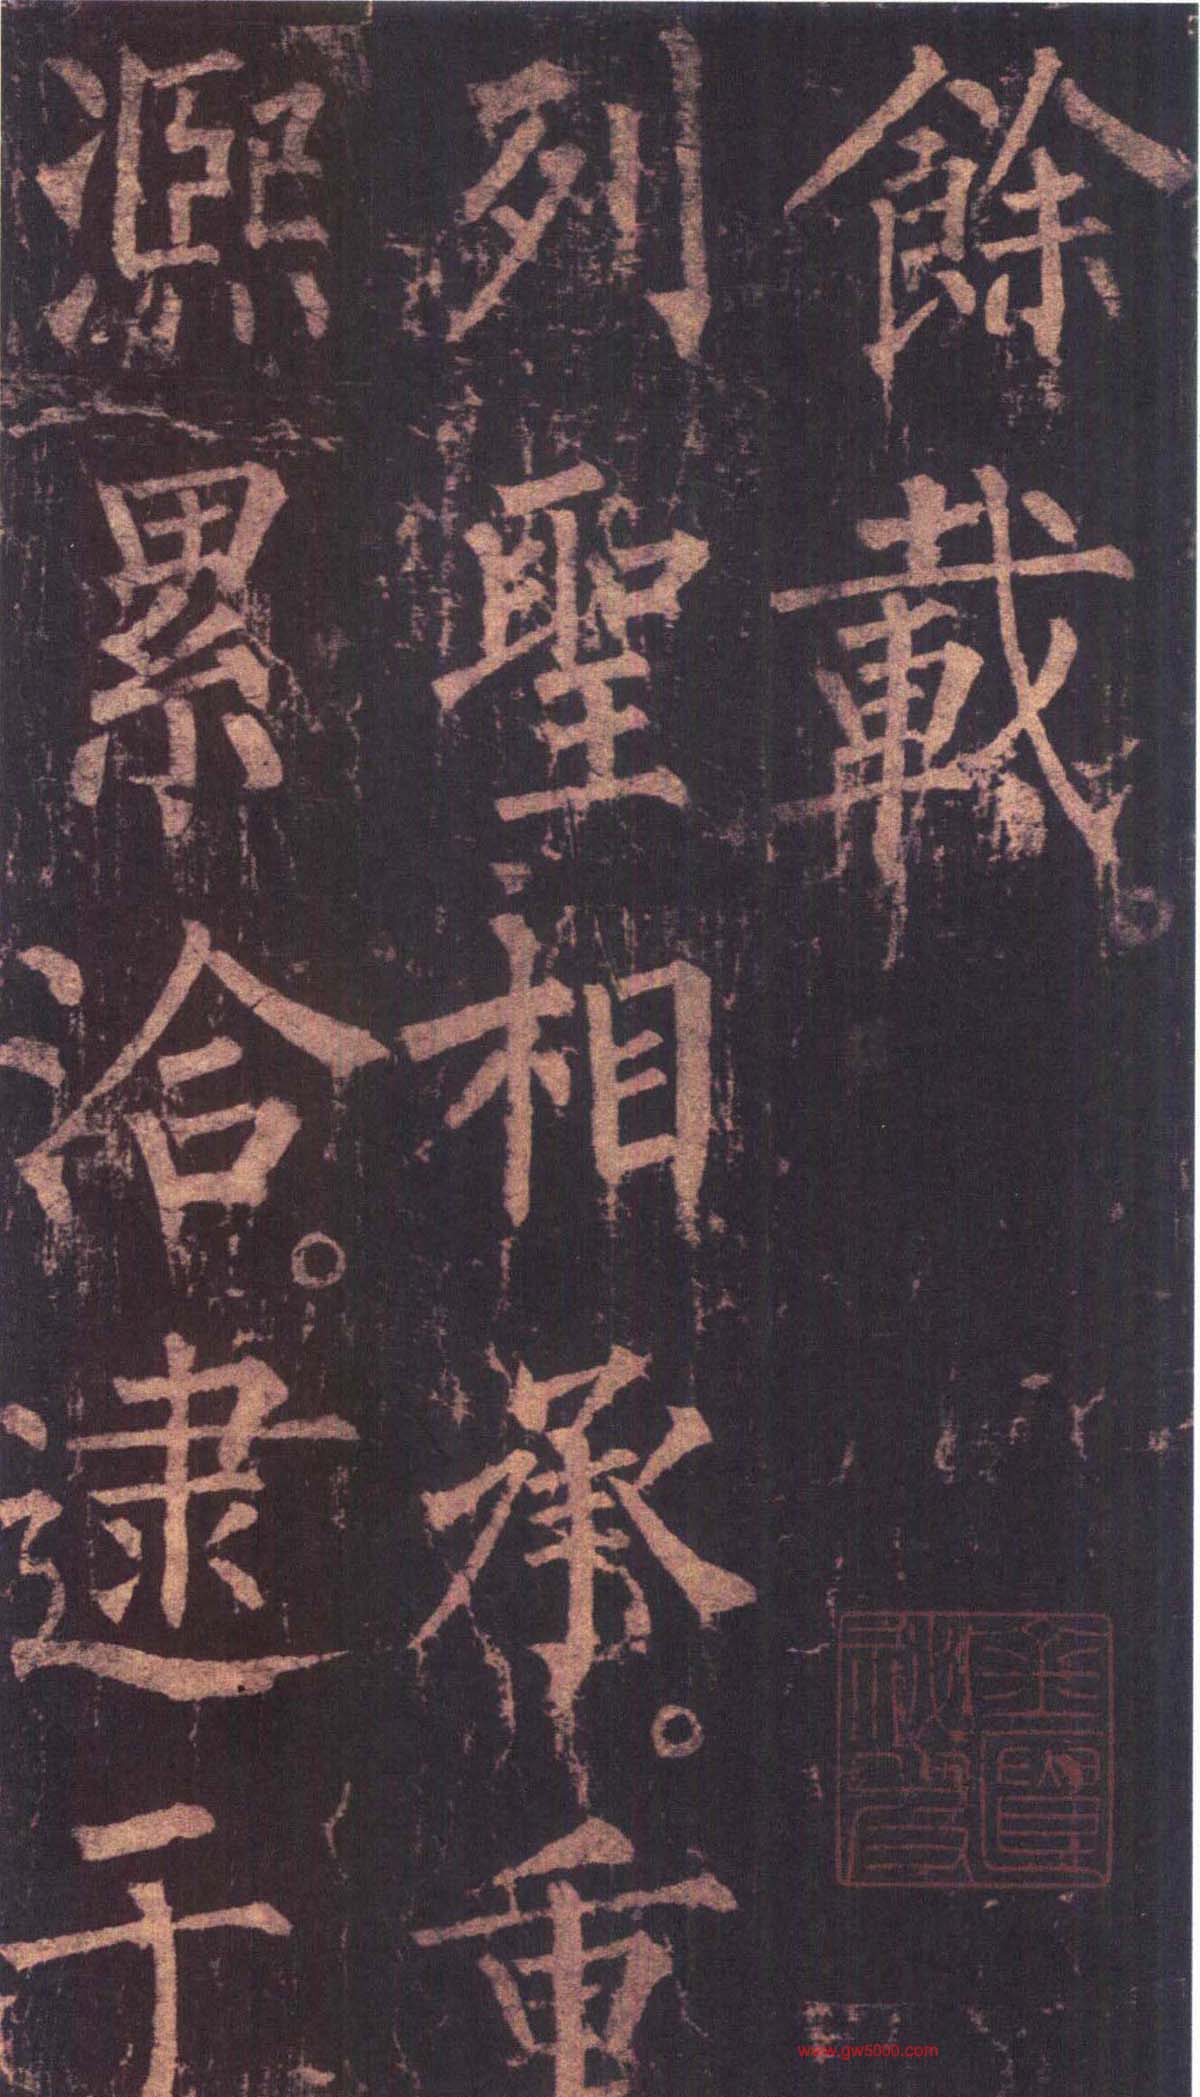 餘載。
列聖相承。重
熙累洽。逮于
www.gw5000.com